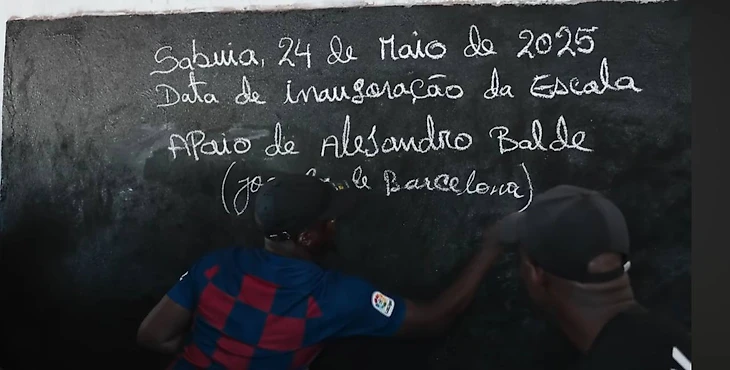 Sabuia, 24 de Maio de 2025
Data de inauguração da Escala
Apaio de Alejandro Balde
de Barcelona)